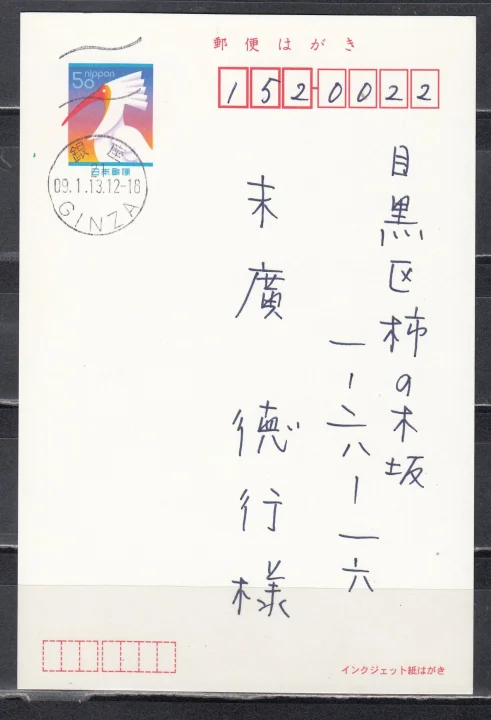 郵便はがき
1520022
50 nippon
日本郵便
銀座
21
09.1.13.12-18
GINZA
目黒区柿の木坂
一-二八-一六
末廣 徳行様
インクジェット紙はがき